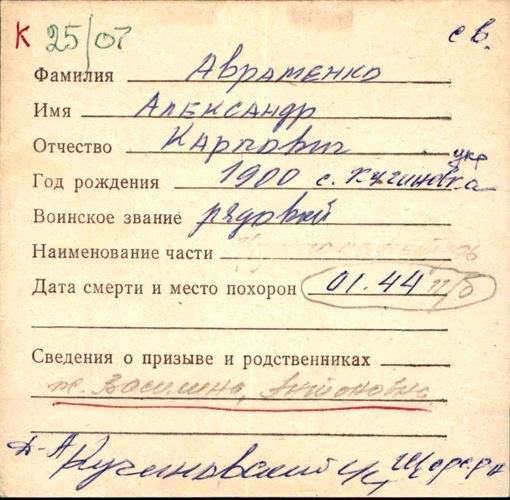 К 25/07 св.
Фамилия Авраменко
Имя Александр
Отчество Карпович
Год рождения 1900 с. Кучиновка укр
Воинское звание рядовой
Наименование части
Дата смерти и место похорон 01.44 п/б
Сведения о призыве и родственниках
ж. Василина, Антоновна
Кучиновский